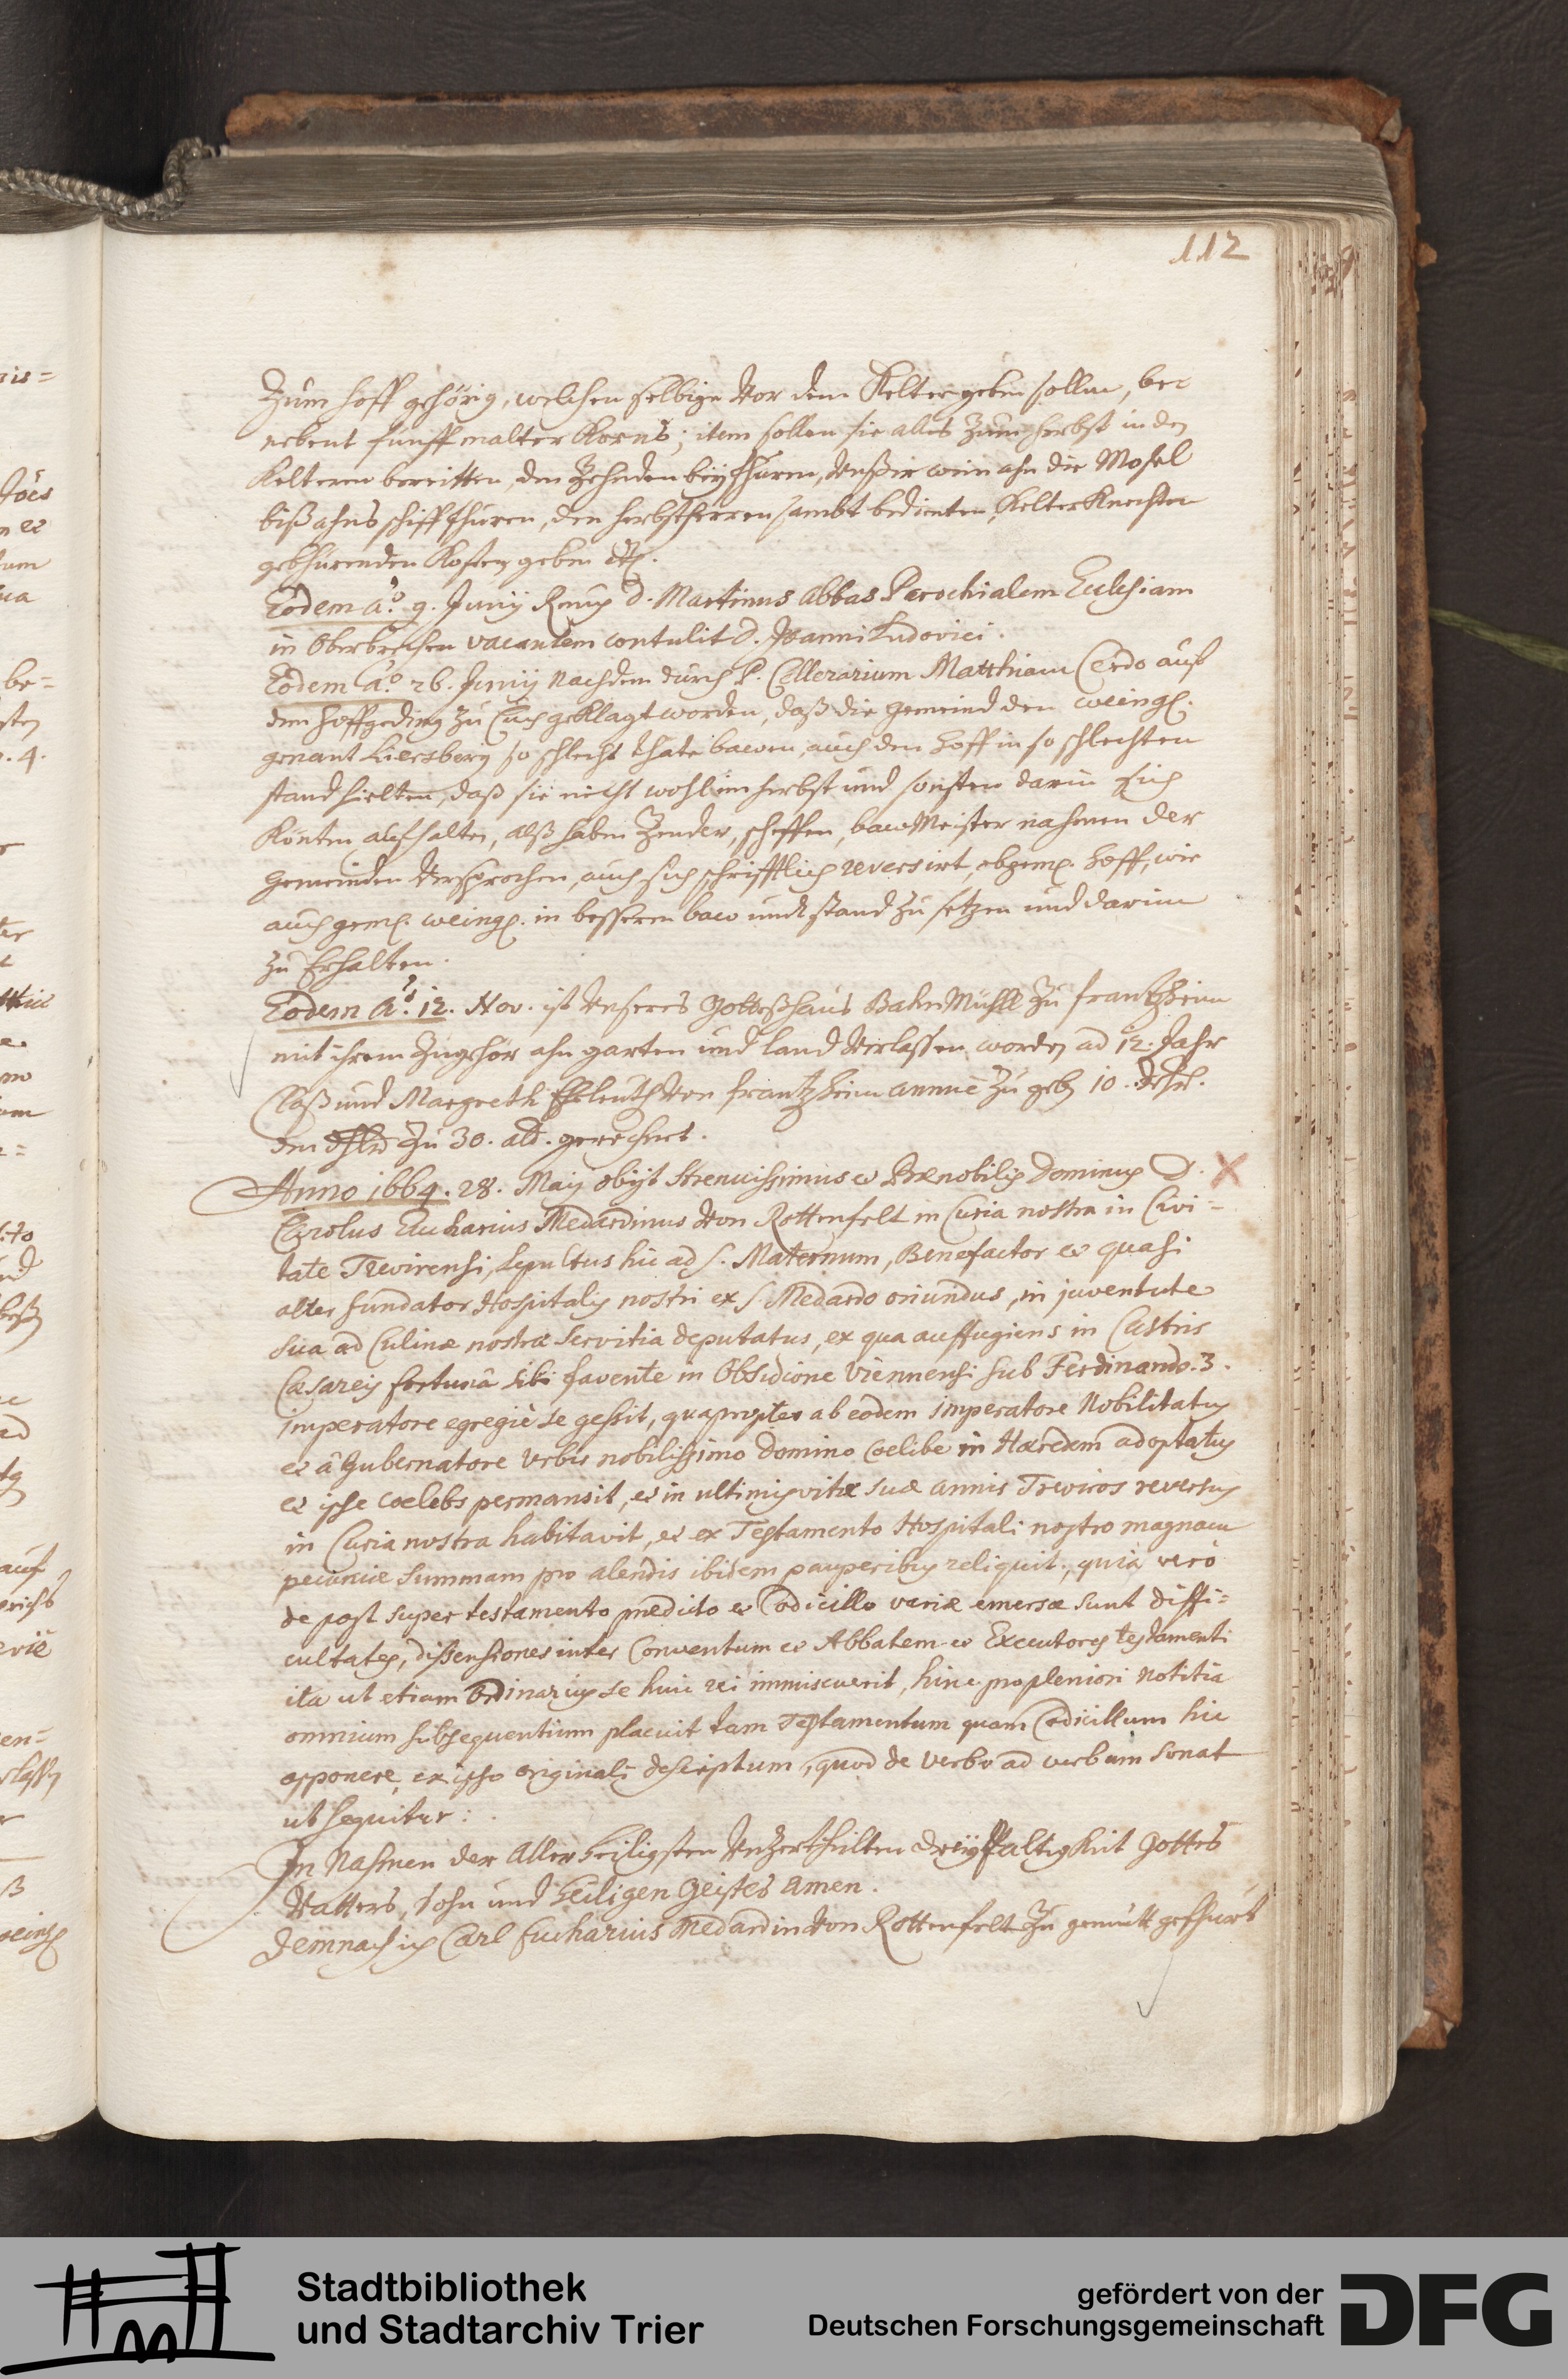 112
Zum hoff gehörig, welchen selbige vor dem Kelter geben sollen, be¬
nebent fünff malter Korns; item sollen sie alles zum herbst in den
Kelteren bereitten, den Zehnden bey thuren, unßere wein ahn die Mosel
biß ahns schiff thuren, den herbstherren sambt bedienten, Kelter Knechten
gebhürenden Kosten geben etc.
Eodem a.o 9. Junij Rmus d. Martinus Abbas Parochialem Ecclesiam
in Oberbrechen vacantem contulit d. Joanni Ludovici.
Eodem a.o 26. Junij nachdem durch P. Cellerarium Matthiam Cerdo auß
dem hoffgeding zu geklagt worden, daß die gemeind den weing.
genant Liersberg so schlecht thäte bawen, auch den hoff in so schlechten
stand hielten, daß sie nicht wohl im herbst und sonsten darin sich
Könten aufhalten, alß haben Zender, scheffen, bawMeister nahmen der
gemeinden versprochen, auch sich schrifftlich reversirt, obgem. hoff, wie
auch gem. weing. in besseren baw undt stand zu setzen und darinn
zu Erhalten.
Eodem A.o 12. Nov. ist unseres Gotteßhaus BahnMühll zu frantzheim
mit ihrem Zugehör ahn garten und land verlassen worden ad 12. Jahr
Claß und Margreth Eheleuth von frantzheim annuè zu geben 10. dhlr.
den dhlr zu 30. alb. gerechnet.
Anno 1664. 28. Maij obijt strenuissimus et Praenobilis Dominus D.
Carolus Eucharius Medardinus von Rottenfelt in Curia nostra in Civi=
tate Trevirensi, sepultus hic ad S. Maternum, Benefactor et quasi
alter fundator Hospitalis nostri ex S. Medardo oriundus, in juventute
sua ad Culinae nostrae Servitia deputatus, ex qua auffugiens in Castris
Caesareis fortunâ sibi favente in Obsidione Viennensi sub Ferdinando. 3.
imperatore egregiè se gessit, quapropter ab eodem imperatore Nobilitatus
et â Gubernatore Urbis nobilissimo Domino coelibe in Haeredem adoptatus
et ipse coelebs permansit, et in ultimis vitae suae annis Treviros reversus
in Curia nostra habitavit, et ex Testamento Hospitali nostro magnam
pecuniae summam pro alendis ibidem pauperibus reliquit, quia verò
de post super testamento praedicto et Codicillo variae emersae sunt diffi=
cultates, dissensiones inter Conventum et Abbatem et Executores testamenti
ita ut etiam Ordinarius se huic rei immiscuerit, hinc pro pleniori notitia
omnium subsequentium placuit tam Testamentum quam Codicillum hic
apponere, ex ipso originali descriptum, quod de verbo ad verbum sonat
ut sequitur:
In Nahmen der Allerheiligsten Unzertheilten dreyffaltigkeit Gottes
Vatters, Sohn und heiligen Geistes Amen.
Demnach ich Carl Eucharius Medardin von Rottenfelt zu gemütt gefhürt
Stadtbibliothek
und Stadtarchiv Trier
gefördert von der
Deutschen Forschungsgemeinschaft
DFG